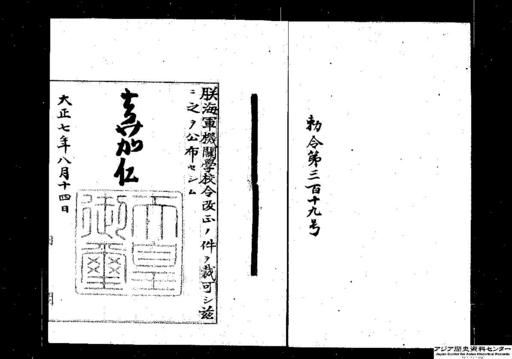 勅令第三百十九号
朕海軍機關學校令改正ノ件ヲ裁可シ茲
ニ之ヲ公布セシム
嘉仁
天皇御璽
大正七年八月十四日
アジア歴史資料センター
Japan Center for Asian Historical Records